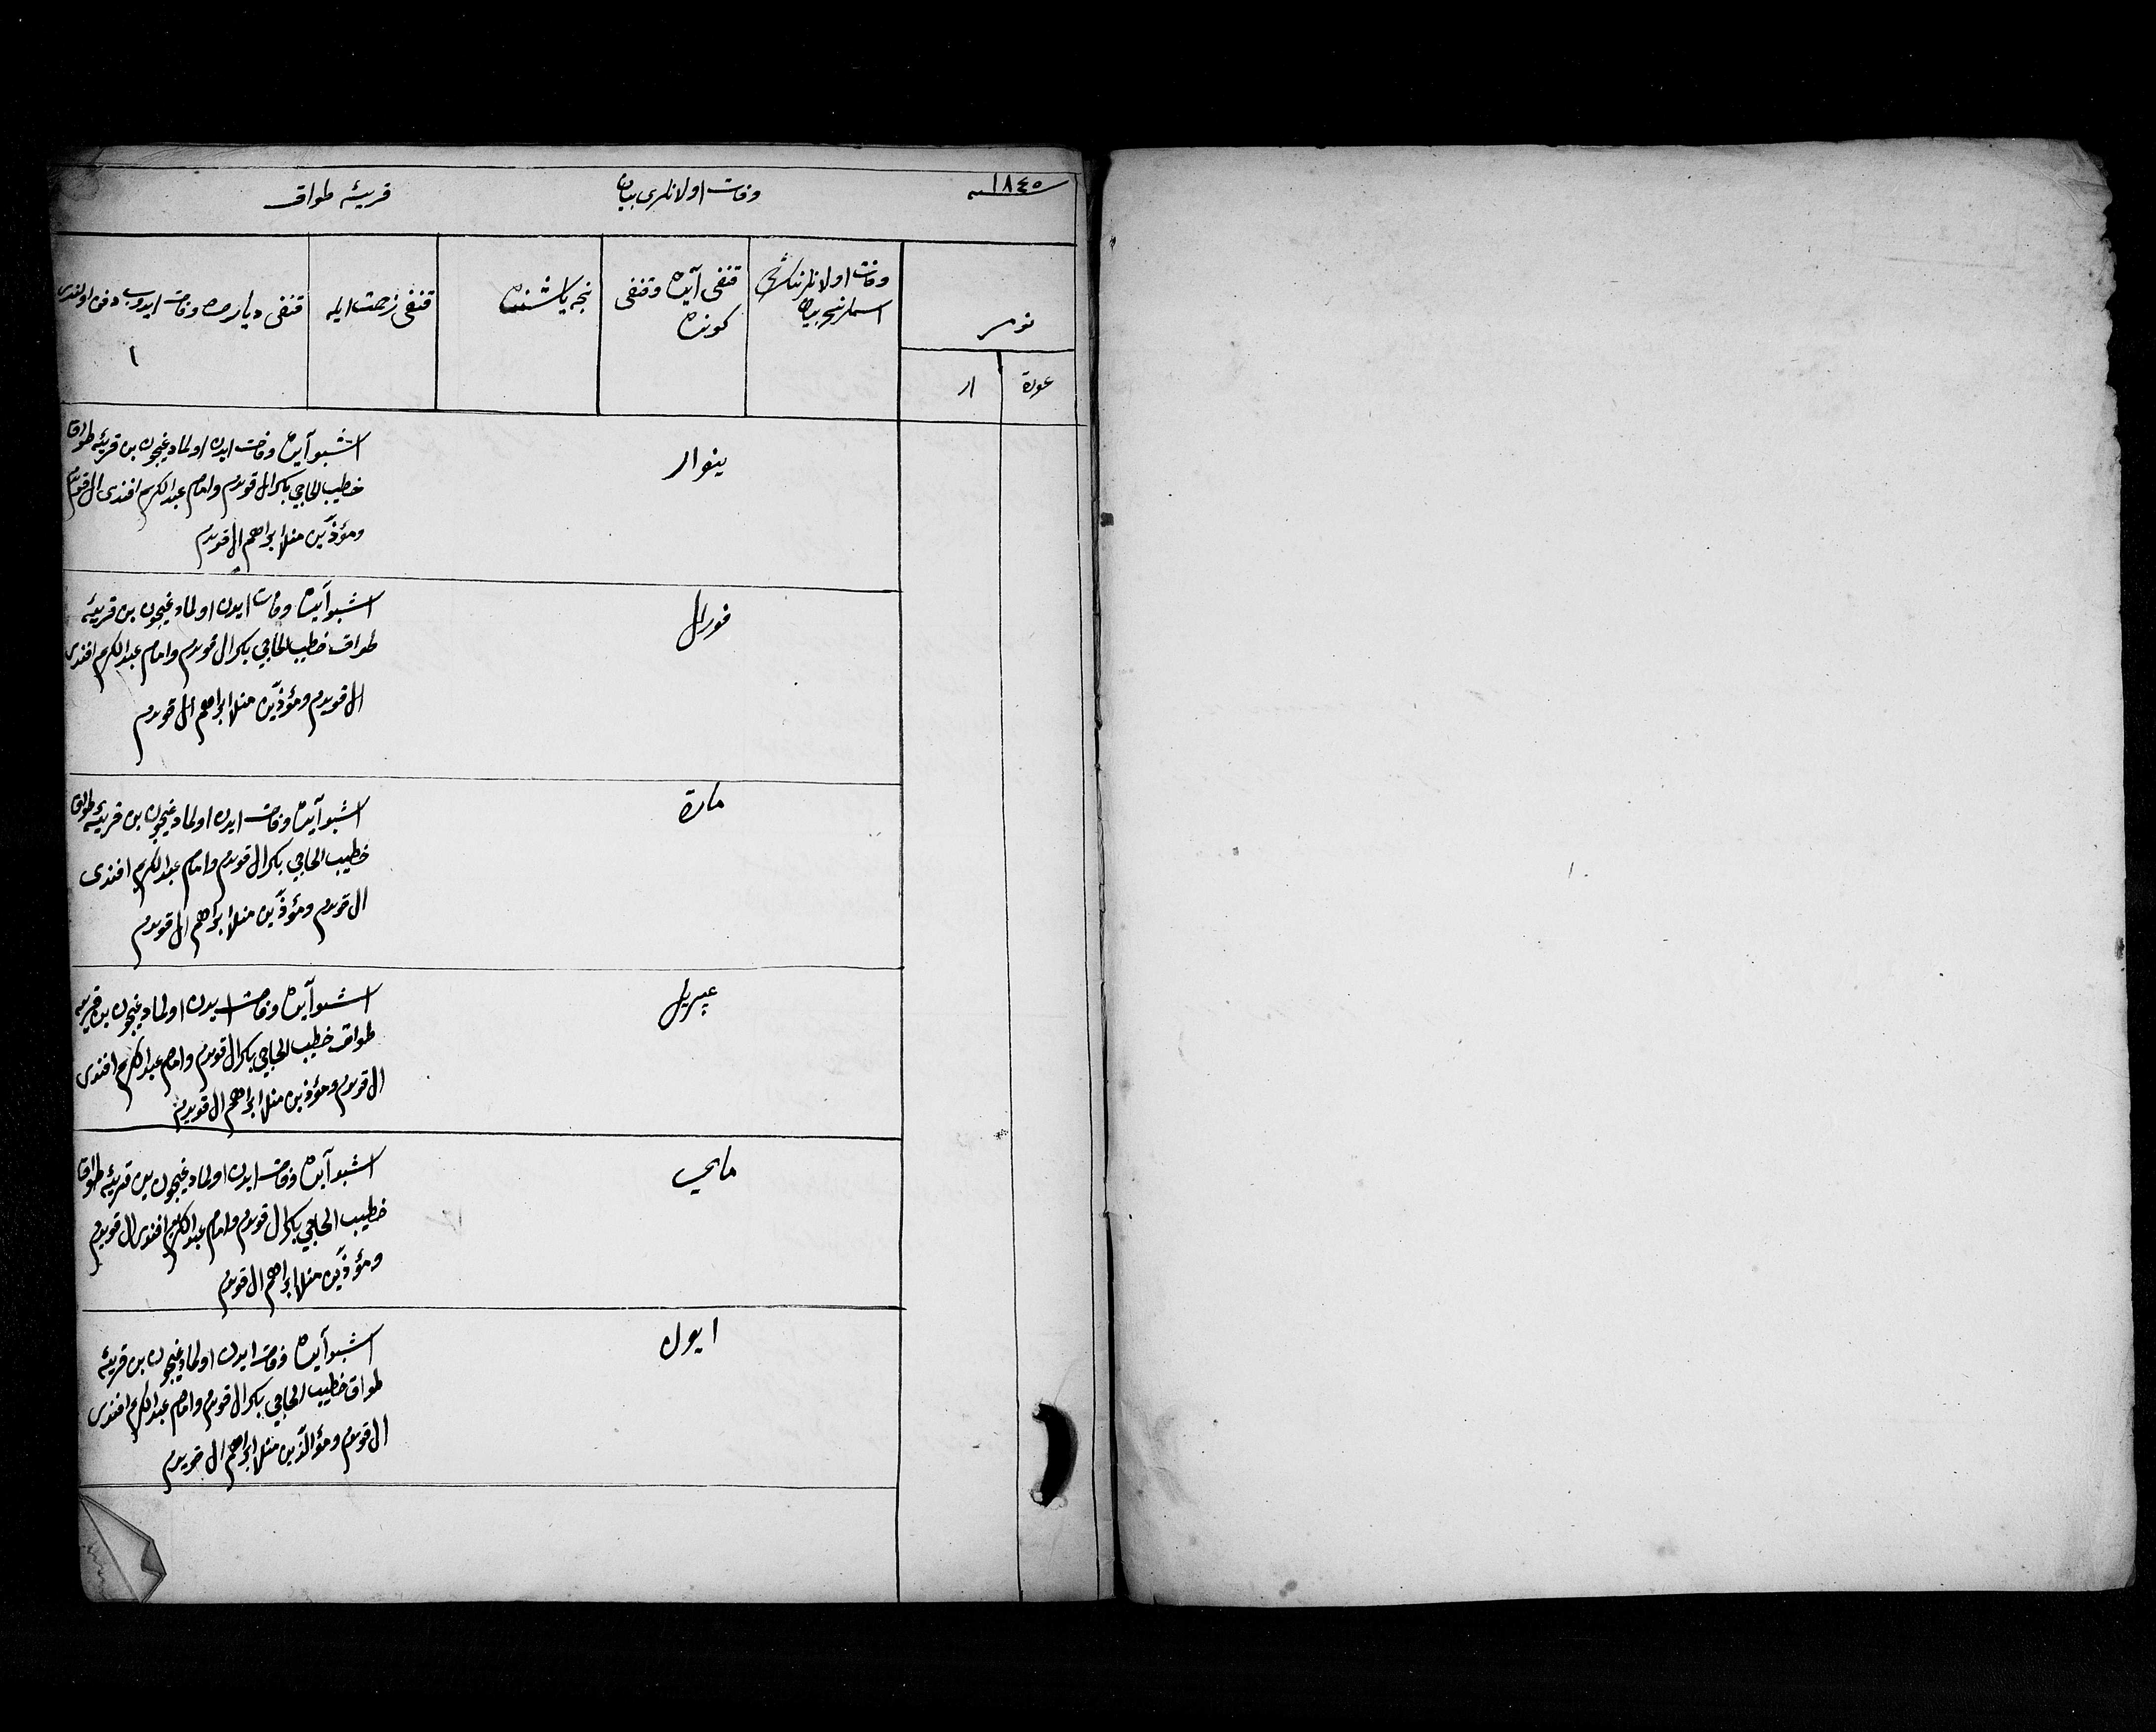 سنه ١٨٤٥
وفات اولانلری بیان
قریهٔ طواق
نومر
عورة
ار
وفات اولانلرنڭ
اسملرینی بیان
قنغی آیده و قنغی
کونده
نچه یاشنده
قنغی زحمت ایله
قنغی دیارده وفات ایدوب دفن اولندی
١
ینوار
اشبو آیده وفات ایدن اولمادیغیچون بن قریهٔ طواق
خطیب الحاجی بکرال قویدم وامام عبدالکریم افندی ال قویدم
ومؤذّین منلا ابراهم ال قویدم
فورال
اشبو آیده وفات ایدن اولمادیغیچون بن قریهٔ
طواق خطیب الحاجی بکرال قویدم وامام عبدالکریم افندی
ال قویدم ومؤذّین منلا ابراهم ال قویدم
مارة
اشبو آیده وفات ایدن اولمادیغیچون بن قریهٔ طواق
خطیب الحاجی بکرال قویدم وامام عبدالکریم افندی
ال قویدم ومؤذّین منلا ابراهم ال قویدم
عپریل
اشبو آیده وفات ایدن اولمادیغیچون بن قریهٔ
طواق خطیب الحاجی بکرال قویدم وامام عبدالکریم افندی
ال قویدم ومؤذین منلا ابراهم ال قویدم
مایی
اشبو آیده وفات ایدن اولمادیغیچون بن قریهٔ طواق
خطیب الحاجی بکرال قویدم وامام عبدالکریم افندی ال قویدم
ومؤذّین منلا ابراهم ال قویدم
ایون
اشبو آیده وفات ایدن اولمادیغیچون بن قریهٔ
طواق خطیب الحاجی بکرال قویدم وامام عبدالکریم افندی
ال قویدم ومؤالذّین منلا ابراهم ال قویدم